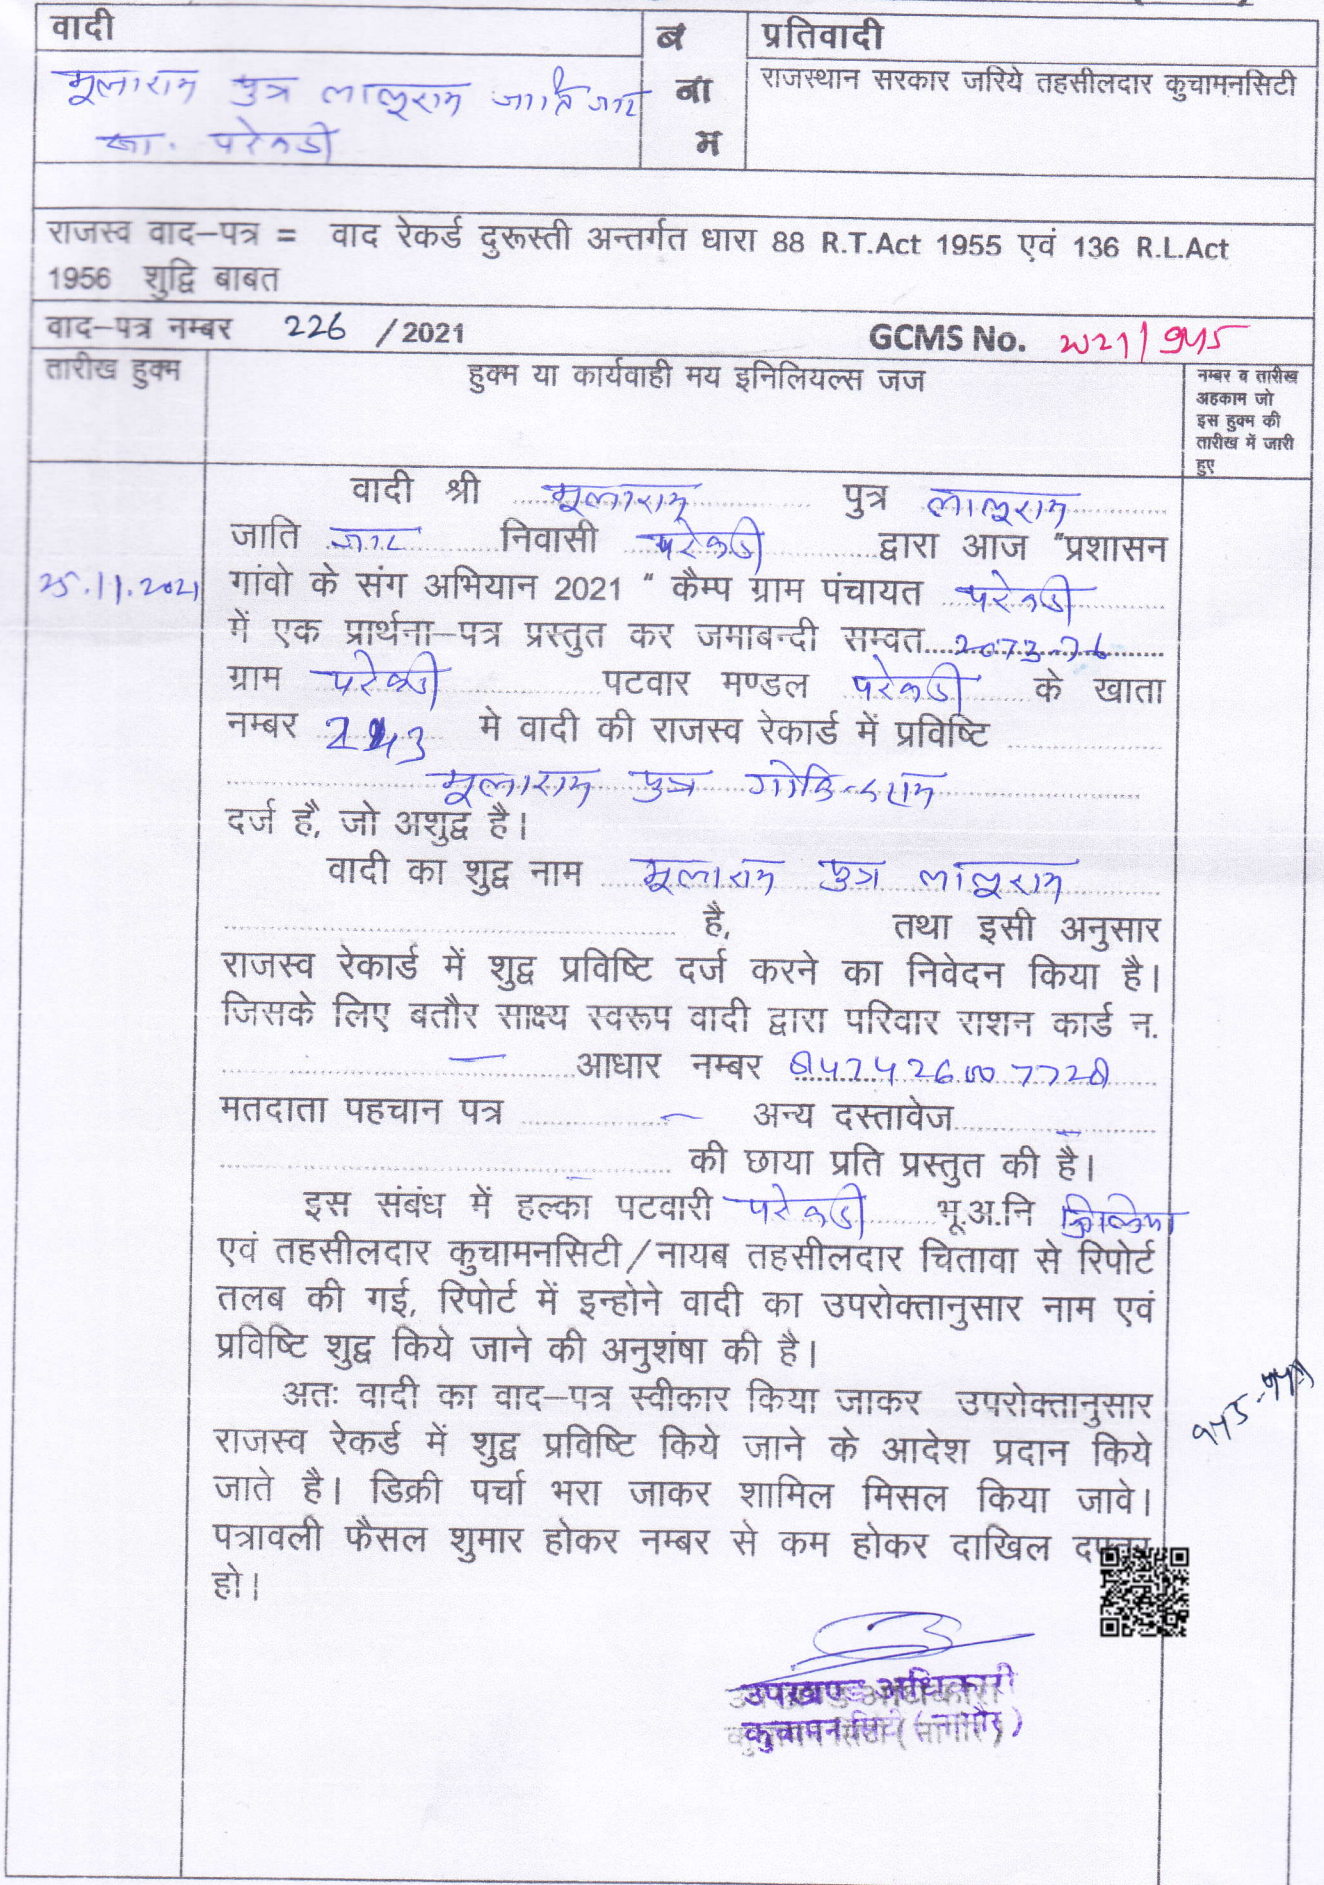 वादी
ब
ना
म
प्रतिवादी
मूलाराम पुत्र लालूराम जाति जाट
सा. परेवडी
राजस्थान सरकार जरिये तहसीलदार कुचामनसिटी
राजस्व वाद–पत्र = वाद रेकर्ड दुरूस्ती अन्तर्गत धारा 88 R.T.Act 1955 एवं 136 R.L.Act
1956 शुद्वि बाबत
वाद–पत्र नम्बर 226 /2021 GCMS No. 2021/945
तारीख हुक्म
हुक्म या कार्यवाही मय इनिलियल्स जज
नम्बर व तारीख
अहकाम जो
इस हुक्म की
तारीख में जारी
हुए
वादी श्री मूलाराम पुत्र लालूराम
जाति जाट निवासी परेवडी द्वारा आज "प्रशासन
25.11.2021
गांवो के संग अभियान 2021 " कैम्प ग्राम पंचायत परेवडी
में एक प्रार्थना–पत्र प्रस्तुत कर जमाबन्दी सम्वत 2073-76
ग्राम परेवडी पटवार मण्डल परेवडी के खाता
नम्बर मे वादी की राजस्व रेकार्ड में प्रविष्टि
मूलाराम पुत्र गोविन्दराम
दर्ज है, जो अशुद्व है।
वादी का शुद्व नाम मूलाराम पुत्र लालूराम
है, तथा इसी अनुसार
राजस्व रेकार्ड में शुद्व प्रविष्टि दर्ज करने का निवेदन किया है।
जिसके लिए बतौर साक्ष्य स्वरूप वादी द्वारा परिवार राशन कार्ड न.
— आधार नम्बर
मतदाता पहचान पत्र — अन्य दस्तावेज —
— की छाया प्रति प्रस्तुत की है।
इस संबंध में हल्का पटवारी परेवडी भू.अ.नि
एवं तहसीलदार कुचामनसिटी/नायब तहसीलदार चितावा से रिपोर्ट
तलब की गई, रिपोर्ट में इन्होने वादी का उपरोक्तानुसार नाम एवं
प्रविष्टि शुद्व किये जाने की अनुशंषा की है।
अतः वादी का वाद–पत्र स्वीकार किया जाकर उपरोक्तानुसार
राजस्व रेकर्ड में शुद्व प्रविष्टि किये जाने के आदेश प्रदान किये
जाते है। डिक्री पर्चा भरा जाकर शामिल मिसल किया जावे।
पत्रावली फैसल शुमार होकर नम्बर से कम होकर दाखिल दफ्तर
हो।
उपखण्ड अधिकारी
कुचामन सिटी (नागौर)